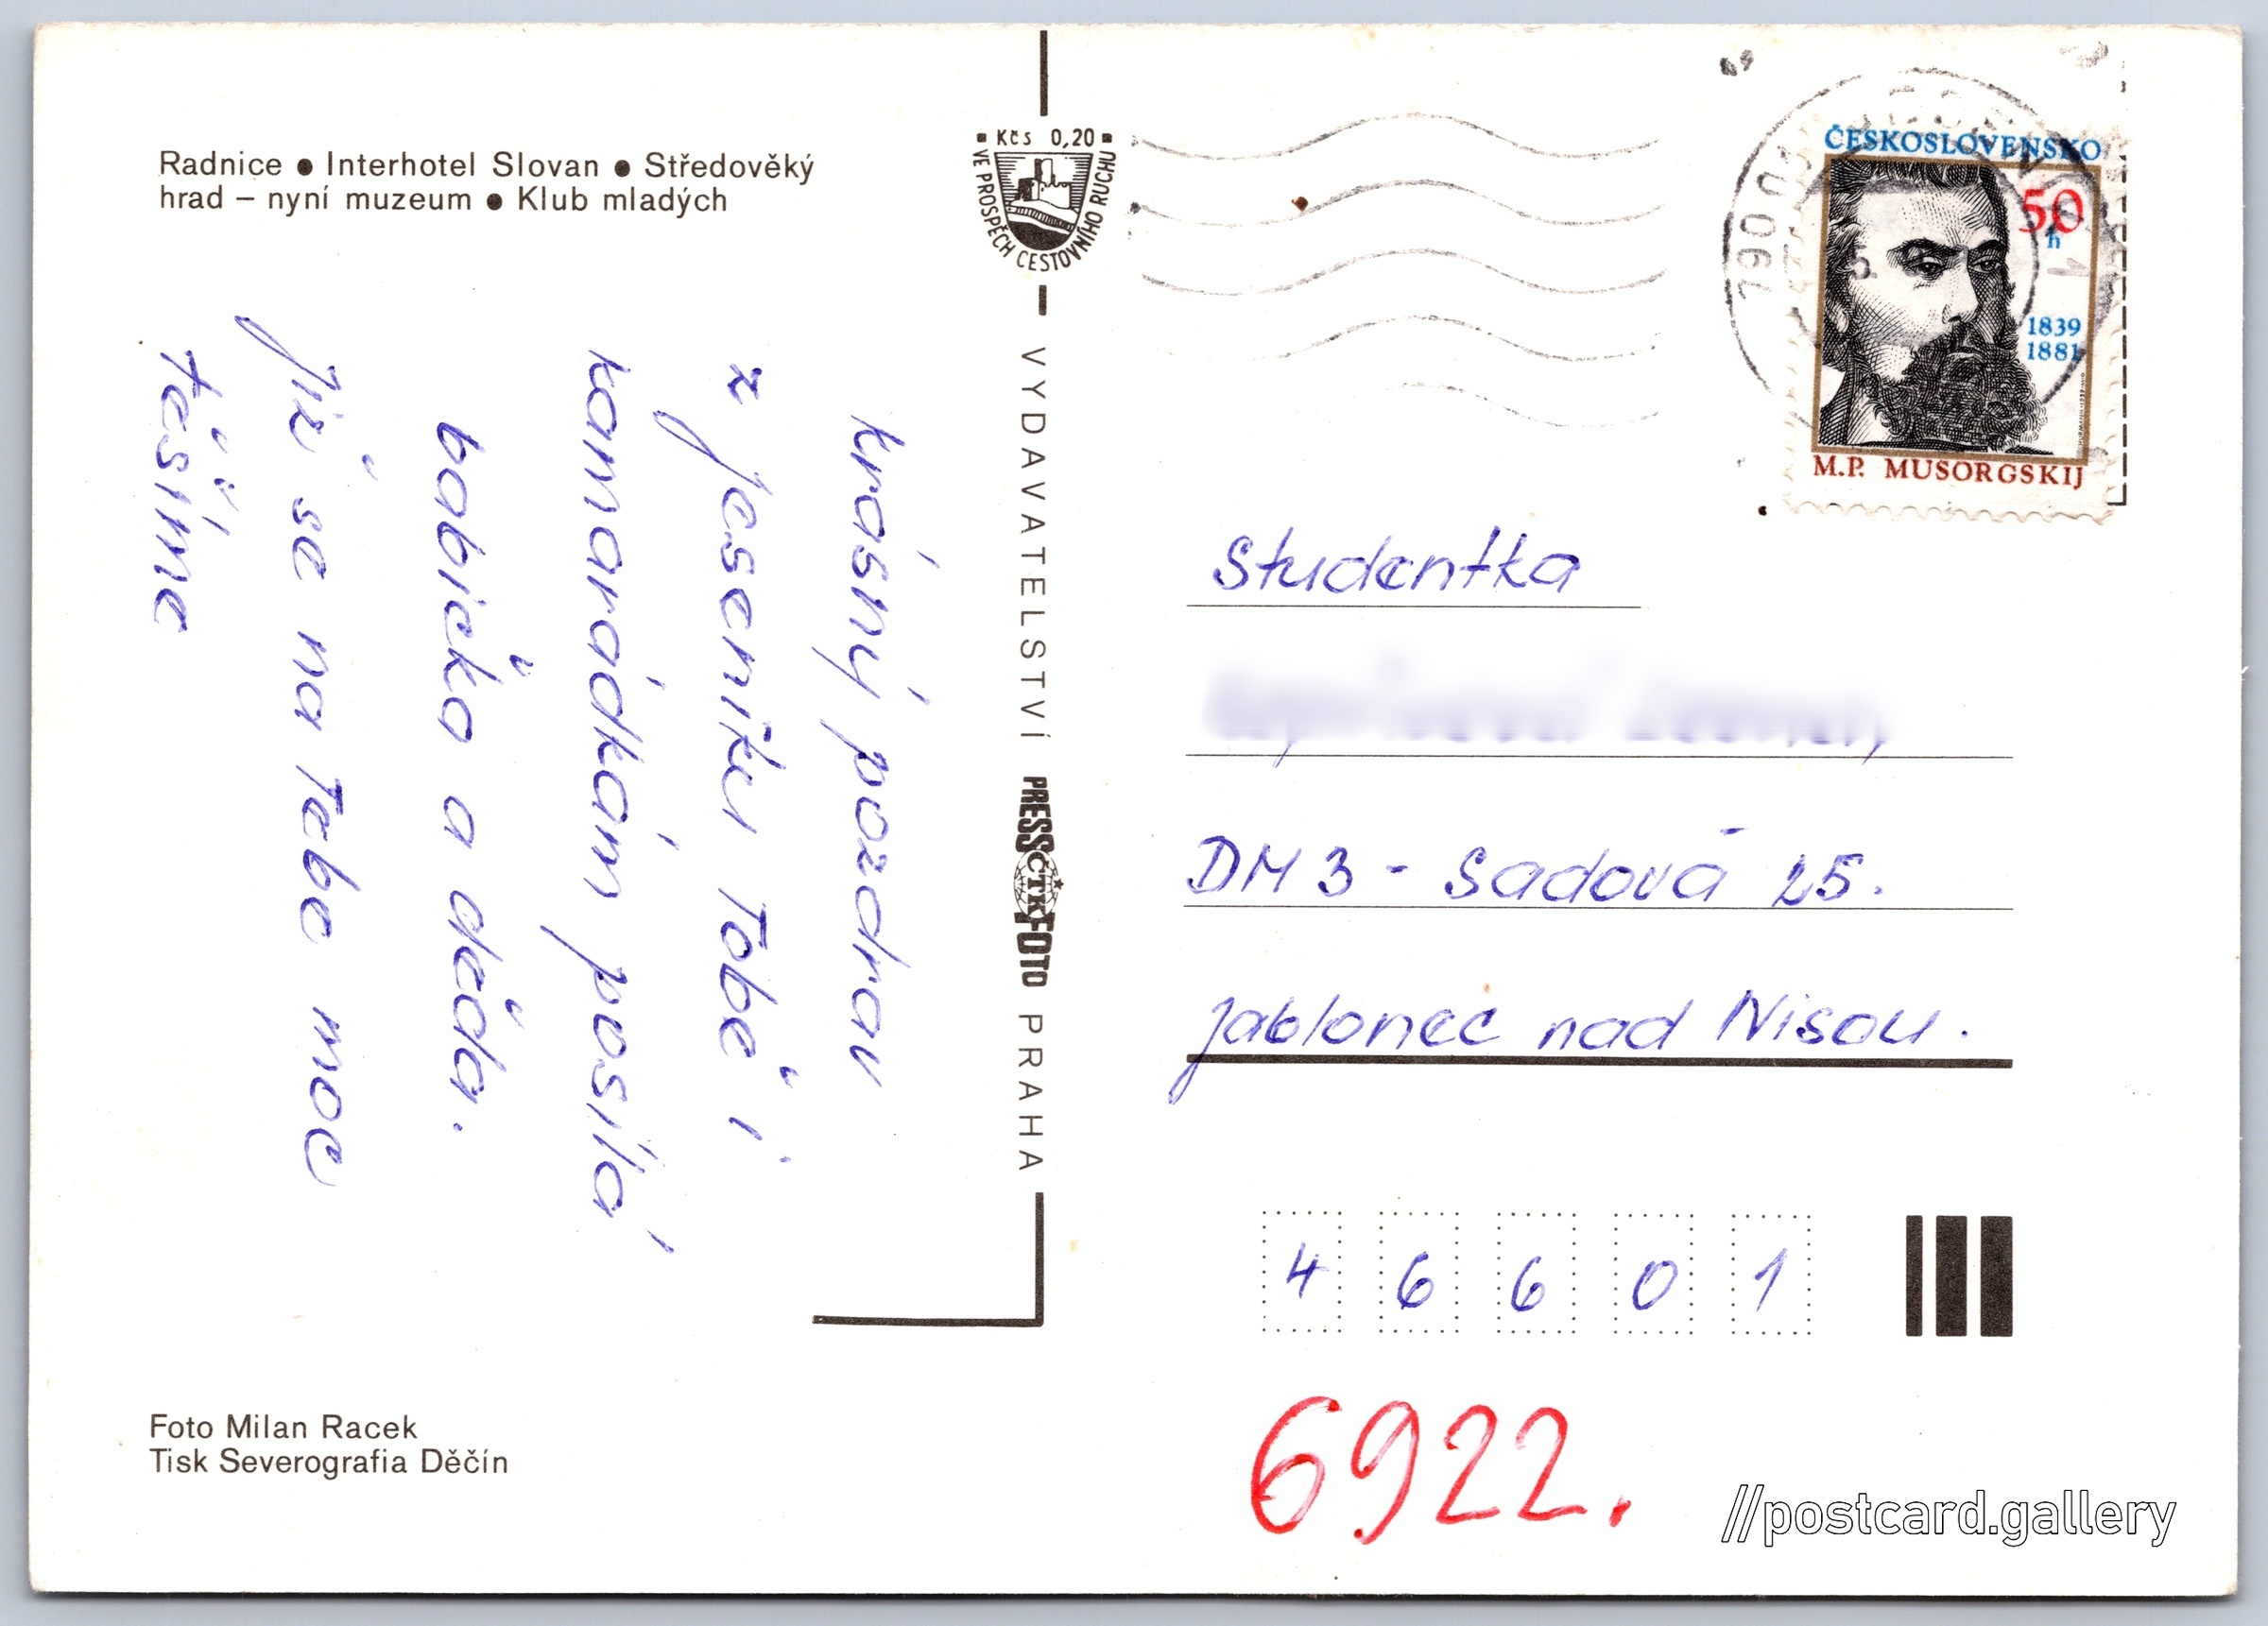 Radnice ● Interhotel Slovan ● Středověký
hrad – nyní muzeum ● Klub mladých
Krásný pozdrav
z Jeseníku Tobě i
kamarádkám posílá
babička a děda.
Již se na Tebe moc
těšíme
Foto Milan Racek
Tisk Severografia Děčín
Kčs 0,20
VE PROSPĚCH CESTOVNÍHO RUCHU
VYDAVATELSTVÍ PRESSFOTO PRAHA
ČTK
790 0
ČESKOSLOVENSKO
50
h
1839
1881
M.P. MUSORGSKIJ
Studentka
DM 3 - Sadová 25.
Jablonec nad Nisou.
4 6 6 0 1
6922.
//postcard.gallery